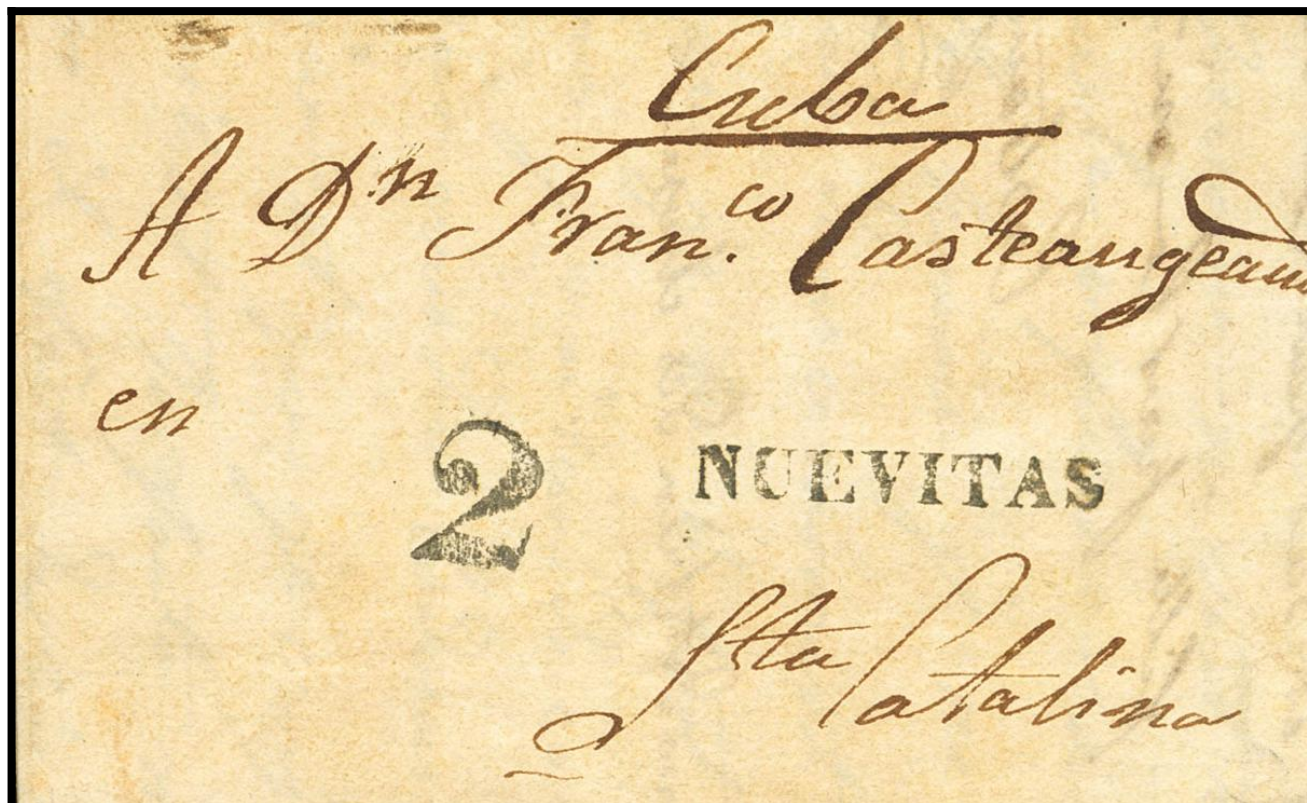 Cuba
A Dn Fran.co Casteangeau
en
2 NUEVITAS
Sta Catalina